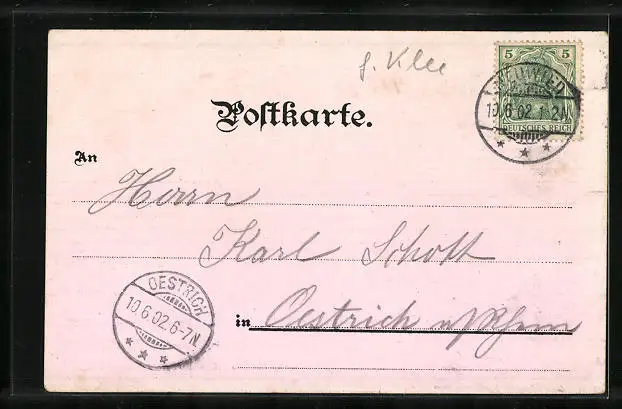 g. Klee
5 5
NEUWIED
10.6.02. 1-2N
DEUTSCHES REICH
Postkarte.
An
Herrn
Karl Schott
OESTRICH
10.6.02. 6-7N
in Oestrich